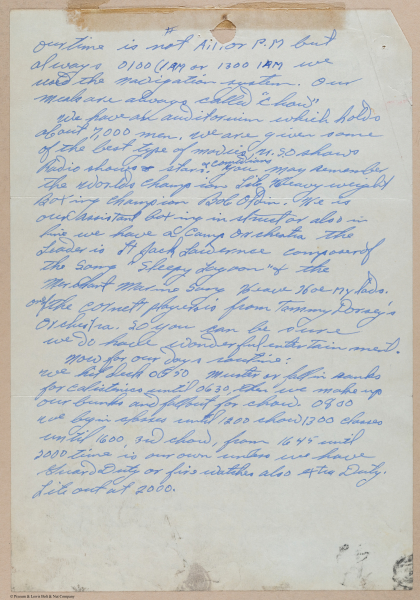 our time is not A.M. or P.M but
always 0100 (1 AM or 1300 1 AM we
used the navigation system. Our
meals are always called "chow"
We have an auditorium which holds
about 7,000 men. we are given some
of the best type of movies, U.S.O shows
Radio shows & stars, comedians You may remember
the worlds champion Lite Heavy weight
Boxing champion Bob Olin. He is
our assistant boxing instructor also in
line we have a Camp Orchestra the
Leader is Lt Jack Lawrence composer of
the Song "Sleepy Lagoon" & the
Merchant Marine Song Heave Ho My Lads.
one of the cornet players is from Tommy Dorsey's
Orchestra. So you can be sure
we do have wonderful entertainment.
Now for our days routine:
we hit deck 0550 muster or fall in ranks
for calistnics until 0630, then we make up
our bunks and fallout for chow. 0830
we begin classes until 1200 chow 1300 classes
until 1600, 3rd chow, from 1645 until
2000 time is our own unless we have
Guard Duty or fire watches also extra Duty.
Lite out at 2000.
© Pieroni & Lewis Holt & Nat Company